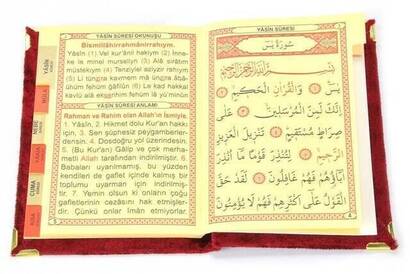 YÂSİN SÛRESİ OKUNUŞU
Bismillâhirrahmânirrahıym.
Yâsîn (1) Vel kur'ânil hakiym (2) İnne-
ke le minel murselîyn (3) Alâ sırâtım
müstekıym (4) Tenziylel aziyzir rahıym
(5) Li tünzira kavmem mâ ünzira âbâ-
ühüm fehüm ğâfilûn (6) Le kad hakkal
kavlü alâ ekserihim fehüm lâ yü'minûn
YÂSİN SÛRESİ ANLAMI
Rahman ve Rahim olan Allah'ın ismiyle.
1. Yâsîn, 2. Hikmet dolu Kur'an hakkı
için, 3. Sen şüphesiz peygamberler-
densin, 4. Dosdoğru yol üzerindesin.
5. (Bu Kur'an) Gâlip ve çok merha-
metli Allah tarafından indirilmiştir. 6.
Babaları uyarılmamış, bu yüzden
kendileri de gaflet içinde kalmış bir
toplumu uyarman için indirilmiş-
tir. 7. Yemin olsun ki onların çoğu
gafletlerinin cezasını hak etmişler-
dir. Çünkü onlar îman etmiyorlar.
YÂSİN
NEBE
CUMA
YÂSİN SÛRESİ
سُورَةُ يٰسٓ
بِسْمِ اللّٰهِ الرَّحْمٰنِ الرَّحِيمِ
يٰسٓ ۝ وَالْقُرْاٰنِ الْحَكِيمِ ۝
اِنَّكَ لَمِنَ الْمُرْسَلِينَ ۝ عَلٰى
صِرَاطٍ مُسْتَقِيمٍ ۝ تَنْزِيلَ الْعَزِيزِ
الرَّحِيمِ ۝ لِتُنْذِرَ قَوْمًا مَٓا اُنْذِرَ
اٰبَٓاؤُ۬هُمْ فَهُمْ غَافِلُونَ ۝ لَقَدْ حَقَّ
الْقَوْلُ عَلٰٓى اَكْثَرِهِمْ فَهُمْ لَا يُؤْمِنُونَ
4